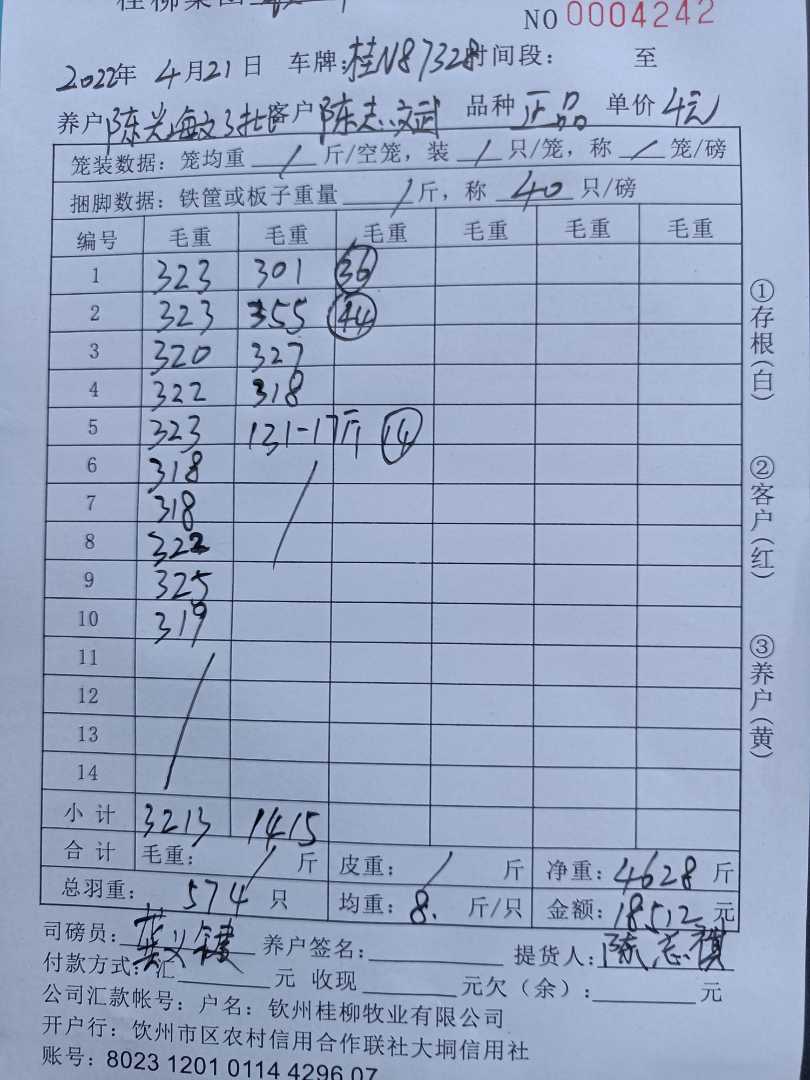 桂柳集团
NO 0004242
2022年 4月21日 车牌:桂N87328时间段: 至
养户 陈光海 客户 陈志武 品种 正品 单价 4元
笼装数据: 笼均重 / 斤/空笼, 装 / 只/笼, 称 / 笼/磅
捆脚数据: 铁筐或板子重量 / 斤, 称 40 只/磅
编号 毛重 毛重 毛重 毛重 毛重 毛重
1 323 301 36
2 323 355 44
3 320 327
4 322 318
5 323 131-17斤 14
6 318
7 318
8 322
9 325
10 319
11
12
13
14
小计 3213 1415
合计 毛重: / 斤 皮重: / 斤 净重: 4628 斤
总羽重: 574 只 均重: 8. 斤/只 金额: 18512 元
司磅员: 养户签名: 提货人: 陈志
付款方式: 汇 元 收现 元欠(余): 元
公司汇款帐号: 户名: 钦州桂柳牧业有限公司
开户行: 饮州市区农村信用合作联社大垌信用社
账号: 8023 1201 0114 4296 07
①存根(白)
②客户(红)
③养户(黄)